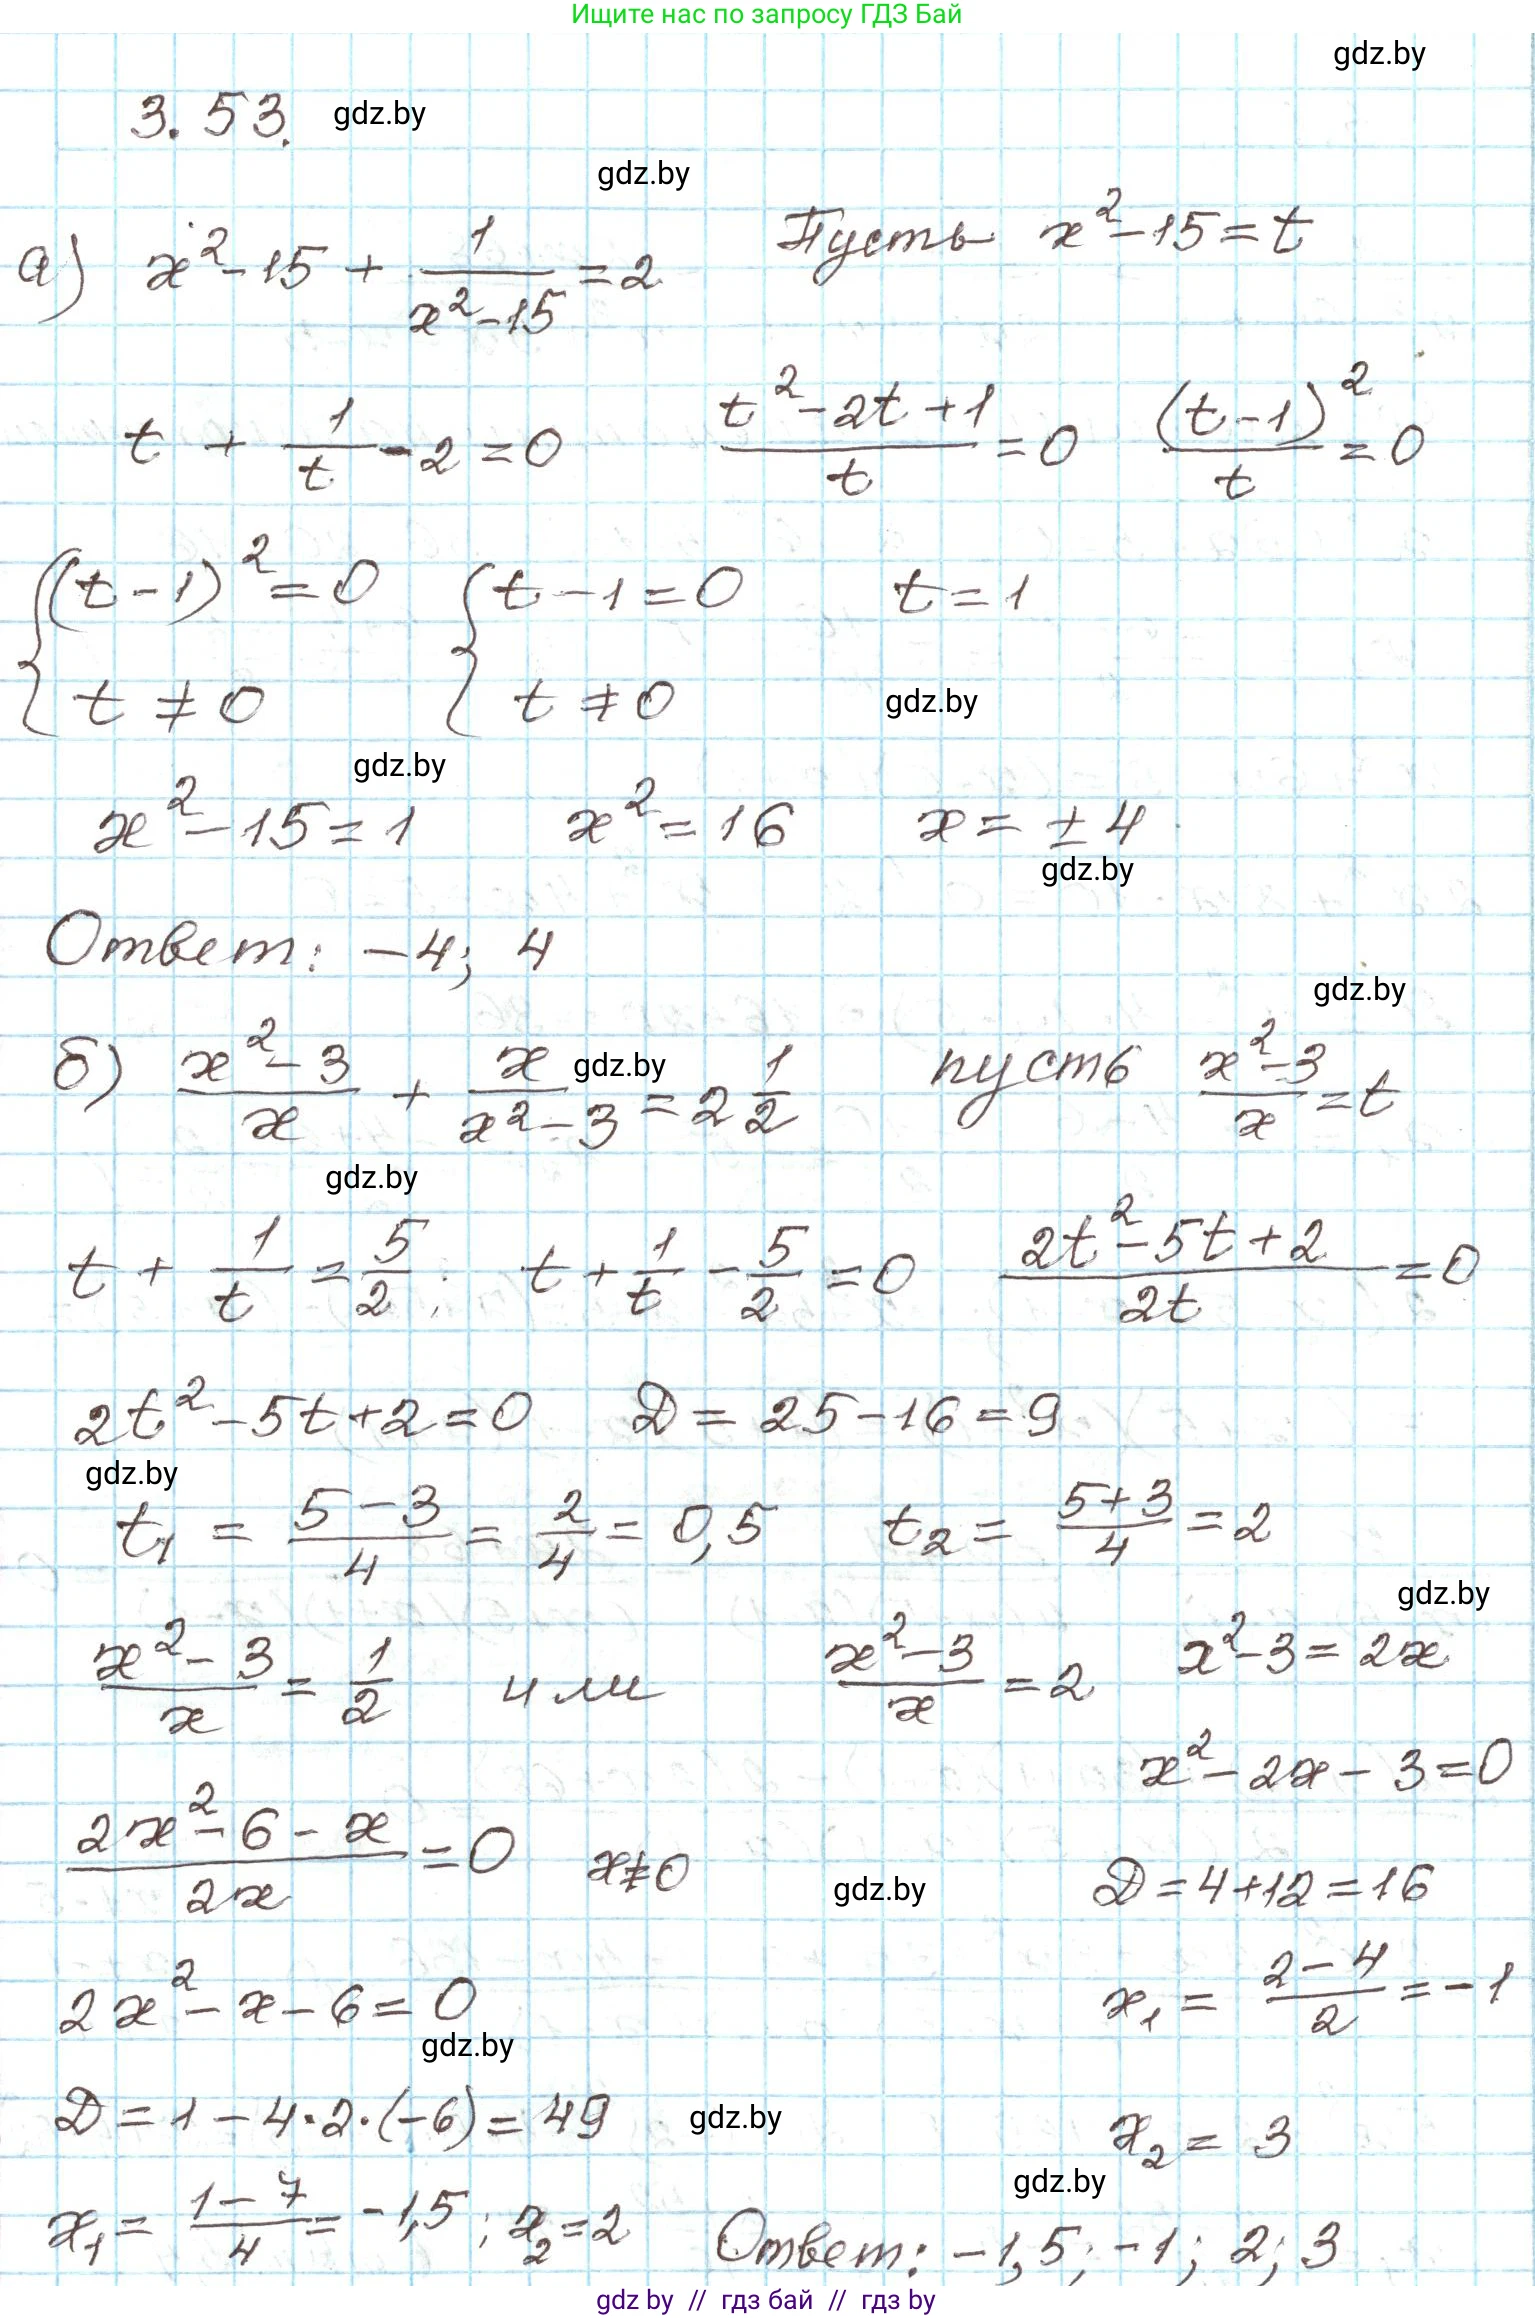 Ищите нас по запросу ГДЗ Бай
gdz.by
3.53. gdz.by
gdz.by
а) x² - 15 + 1/(x² - 15) = 2 Пусть x² - 15 = t
t + 1/t - 2 = 0 (t² - 2t + 1)/t = 0 (t - 1)²/t = 0
{(t - 1)² = 0 {t - 1 = 0 t = 1
t ≠ 0 t ≠ 0 gdz.by
gdz.by
x² - 15 = 1 x² = 16 x = ± 4
gdz.by
Ответ: -4; 4
gdz.by
б) (x² - 3)/x + x/(x² - 3) = 2 1/2 gdz.by пусть (x² - 3)/x = t
gdz.by
t + 1/t = 5/2; t + 1/t - 5/2 = 0 (2t² - 5t + 2)/2t = 0
2t² - 5t + 2 = 0 D = 25 - 16 = 9
gdz.by
t₁ = (5 - 3)/4 = 2/4 = 0,5 t₂ = (5 + 3)/4 = 2
gdz.by
(x² - 3)/x = 1/2 или (x² - 3)/x = 2 x² - 3 = 2x
x² - 2x - 3 = 0
(2x² - 6 - x)/2x = 0 x ≠ 0 gdz.by D = 4 + 12 = 16
2x² - x - 6 = 0 x₁ = (2 - 4)/2 = -1
gdz.by
D = 1 - 4·2·(-6) = 49 gdz.by x₂ = 3
gdz.by
x₁ = (1 - 7)/4 = -1,5; x₂ = 2 Ответ: -1,5; -1; 2; 3
gdz.by // гдз бай // гдз by